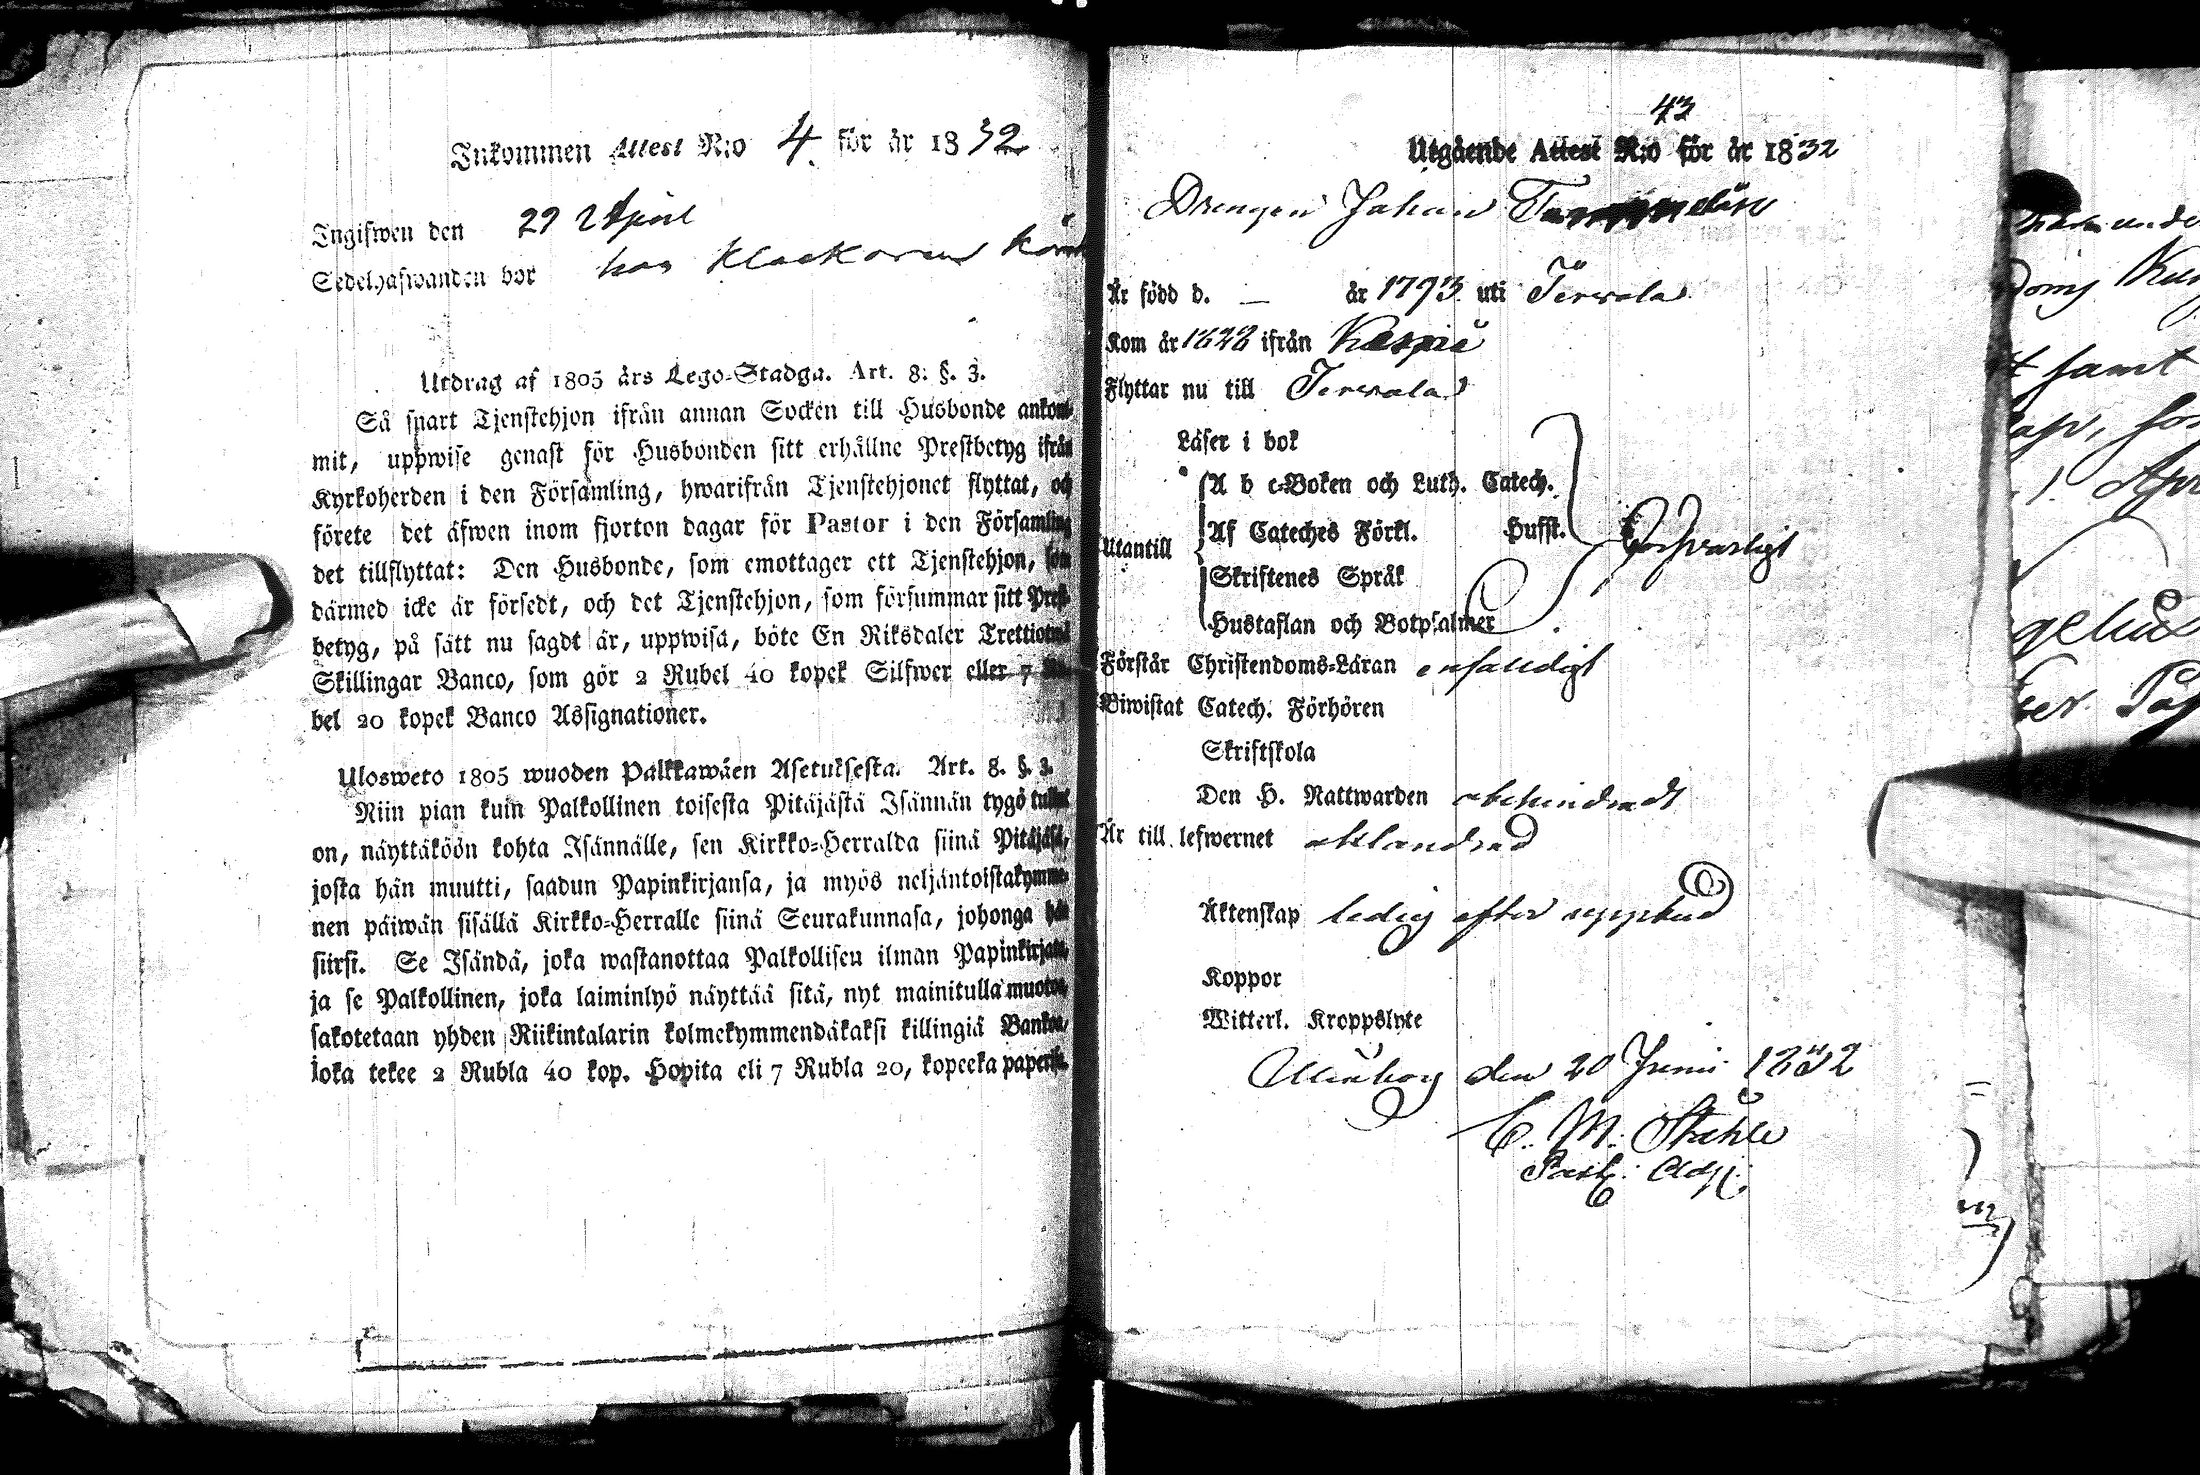 Inkommen Attest N:o 4. för år 1832
Ingifwen den 29 April
Sedelhafwanden bor hos Klockaren
Utdrag af 1805 års Lego-Stadga. Art. 8. §. 3.
Så snart Tjenstehjon ifrån annan Socken till Husbonde ankom-
mit, uppwise genast för Husbonden sitt erhållne Prestbetyg ifrån
Kyrkoherden i den Församling, hwarifrån Tjenstehjonet flyttat, och
förete det äfwen inom fjorton dagar för Pastor i den Församling
det tillflyttat: Den Husbonde, som emottager ett Tjenstehjon, som
därmed icke är försedt, och det Tjenstehjon, som försummar sitt Prest-
betyg, på sätt nu sagdt är, uppwisa, böte En Riksdaler Trettiotwå
Skillingar Banco, som gör 2 Rubel 40 kopek Silfwer eller 7 Ru-
bel 20 kopek Banco Assignationer.
Ulosweto 1805 wuoden Palkkawäen Asetuksesta. Art. 8. §. 3.
Niin pian kuin Palkollinen toisesta Pitäjästä Isännän tygö tullut
on, näyttäköön kohta Isännälle, sen Kirkko-Herralda siinä Pitäjäsä,
josta hän muutti, saadun Papinkirjansa, ja myös neljäntoistakymme-
nen päiwän sisällä Kirkko-Herralle siinä Seurakunnasa, johonga hän
siirsi. Se Isändä, joka wastanottaa Palkollisen ilman Papinkirjata,
ja se Palkollinen, joka laiminlyö näyttää sitä, nyt mainitulla muotoa,
sakotetaan yhden Riikintalarin kolmekymmendäkaksi killingiä Bankoa,
joka tekee 2 Rubla 40 kop. Hopita eli 7 Rubla 20, kopeeka paperisa.
43
Utgående Attest N:o för år 1832
Drengen Johan
Är född d. — år 1793 uti Terwola
Kom år 1828 ifrån
Flyttar nu till Terwola
Läser i bok
A b c-Boken och Luth. Catech.
Af Cateches Förkl. Husst.
Utantill försvarligt
Skriftenes Språk
Hustaflan och Botpsalmer
Förstår Christendoms-Läran enfaldigt
Biwistat Catech. Förhören
Skriftskola
Den H. Nattwarden obehindradt
Är till lefwernet oklandrad
Äktenskap ledig efter
Koppor
Witterl. Kroppslyte
Uleåborg den 20 Junii 1832
C. M. Ståhle
Past: Adj: